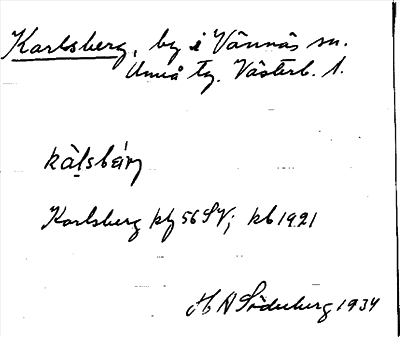 Karlsberg, by i Vännäs sn.
Umeå tg. Västerb. l.
Karlsberg kbl 56 SV; kb 1921
H A Söderberg 1934